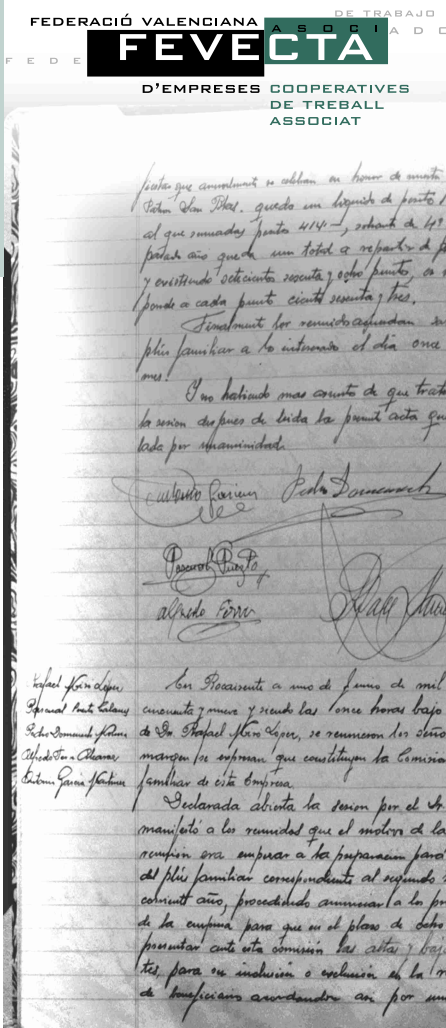 DE TRABAJO
FEDERACIÓ VALENCIANA
ASOCIADO
FEDE
FEVECTA
D'EMPRESES COOPERATIVES
DE TREBALL
ASSOCIAT
fiestas que anualmente se celebran en honor de nuestro
Patron San Blas. queda un liquido de
al que sumadas 414
pasado año queda un total a repartir de
y existiendo setecientos sesenta y ocho puntos,
ponde a cada punto ciento sesenta y tres.
Finalment los reunidos acuerdan
plús familiar a los interesados el dia once
mes.
Y no habiendo mas asunto de que trata
la sesion despues de leida la present acta que
lada por unanimidad.
Pedro Domenech
Pascual
Alfredo Ferre
Rafael Miró López
Pascual
Pedro Domenech
Alfredo
Antonio Garcia Martinez
En Bocairente a uno de Junio de mil
cincuenta y nueve y siendo las once horas bajo
de Dn. Rafael Miró Lopez, se reunieron los seño
margen se expresan que constituyen la Comision
familiar de ésta Empresa.
Declarada abierta la sesion por el Sr.
manifestó a los reunidos que el motivo de la
reunion era empezar a la preparacion para
del plús familiar correspondiente al segundo
corriente año, procediendo anunciar a los pr
de la empresa para que en el plazo de ocho
presentar ante esta comisión las altas y baja
tes, para su inclusión o exclusión en la
de beneficiarios acordandose asi por una